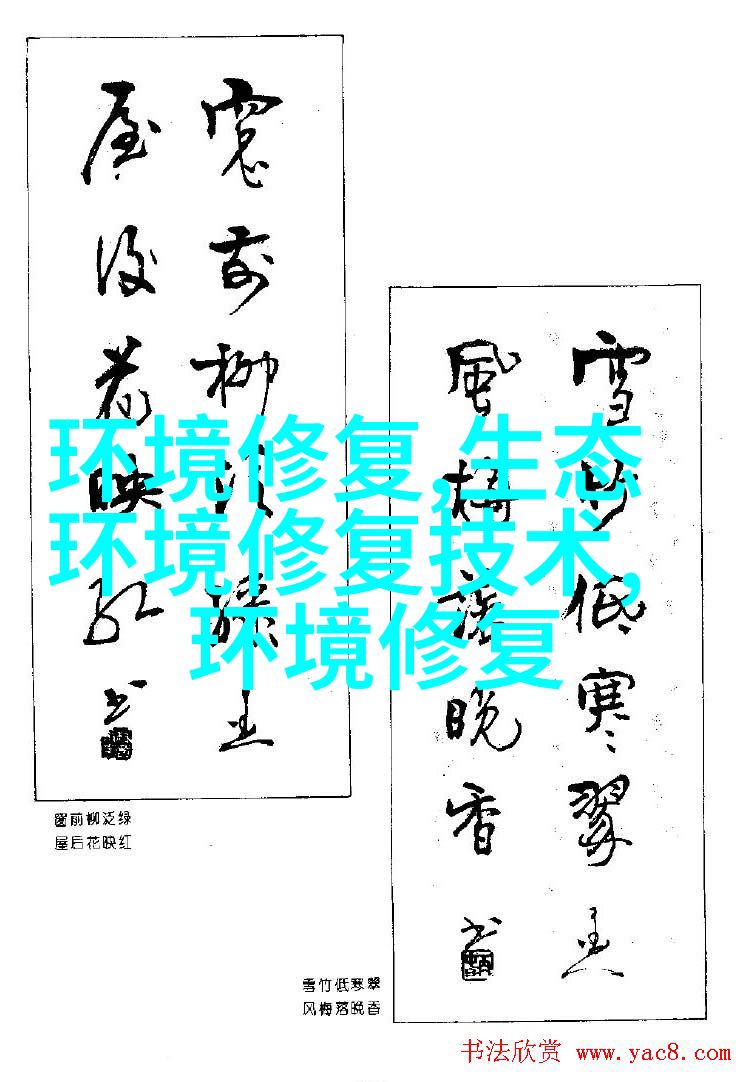 窓前柳泛绿
屋後花映红
书
雪竹低寒翠
風梅落晚香
书
环境修复,生态
环境修复技术,
环境修复
窗前柳泛绿
屋后花映红
雪竹低寒翠
风梅落晚香
书法欣赏 www.yac8.com